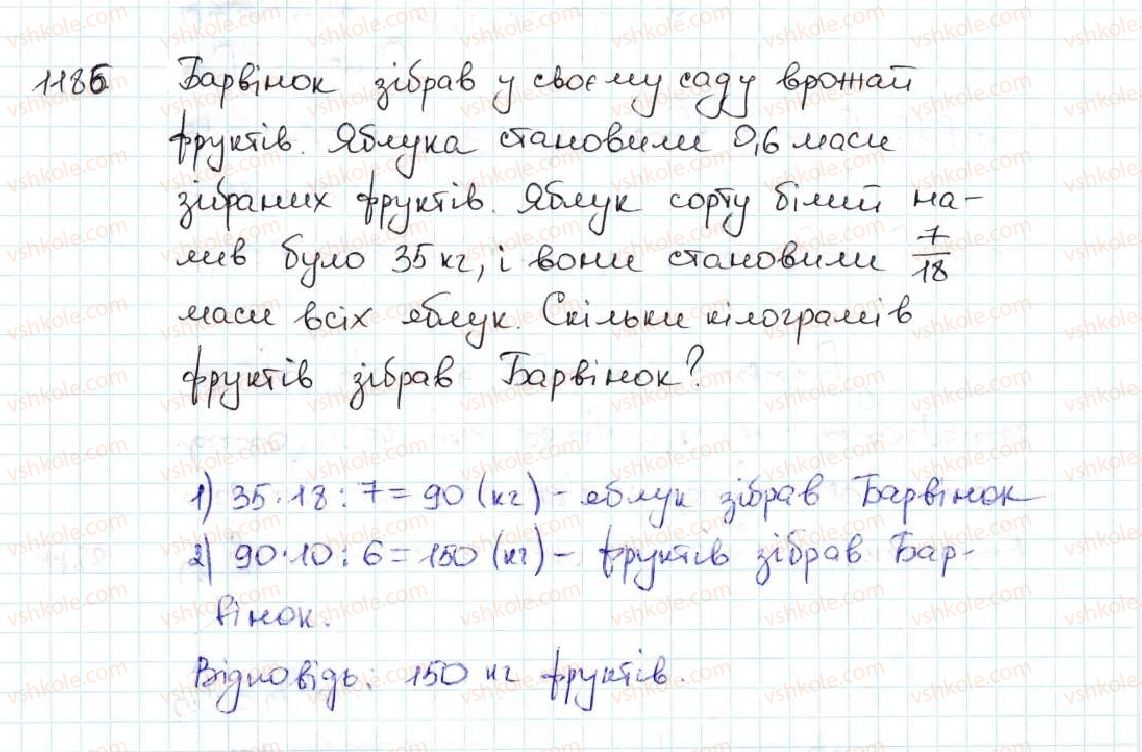 1186 Барвінок зібрав у своєму саду врожай
фруктів. Яблука становили 0,6 маси
зібраних фруктів. Яблук сорту білий на-
лив було 35 кг, і вони становили 7/18
маси всіх яблук. Скільки кілограмів
фруктів зібрав Барвінок?
1) 35·18:7=90 (кг) - яблук зібрав Барвінок
2) 90·10:6=150 (кг) - фруктів зібрав Бар-
вінок.
Відповідь: 150 кг фруктів.